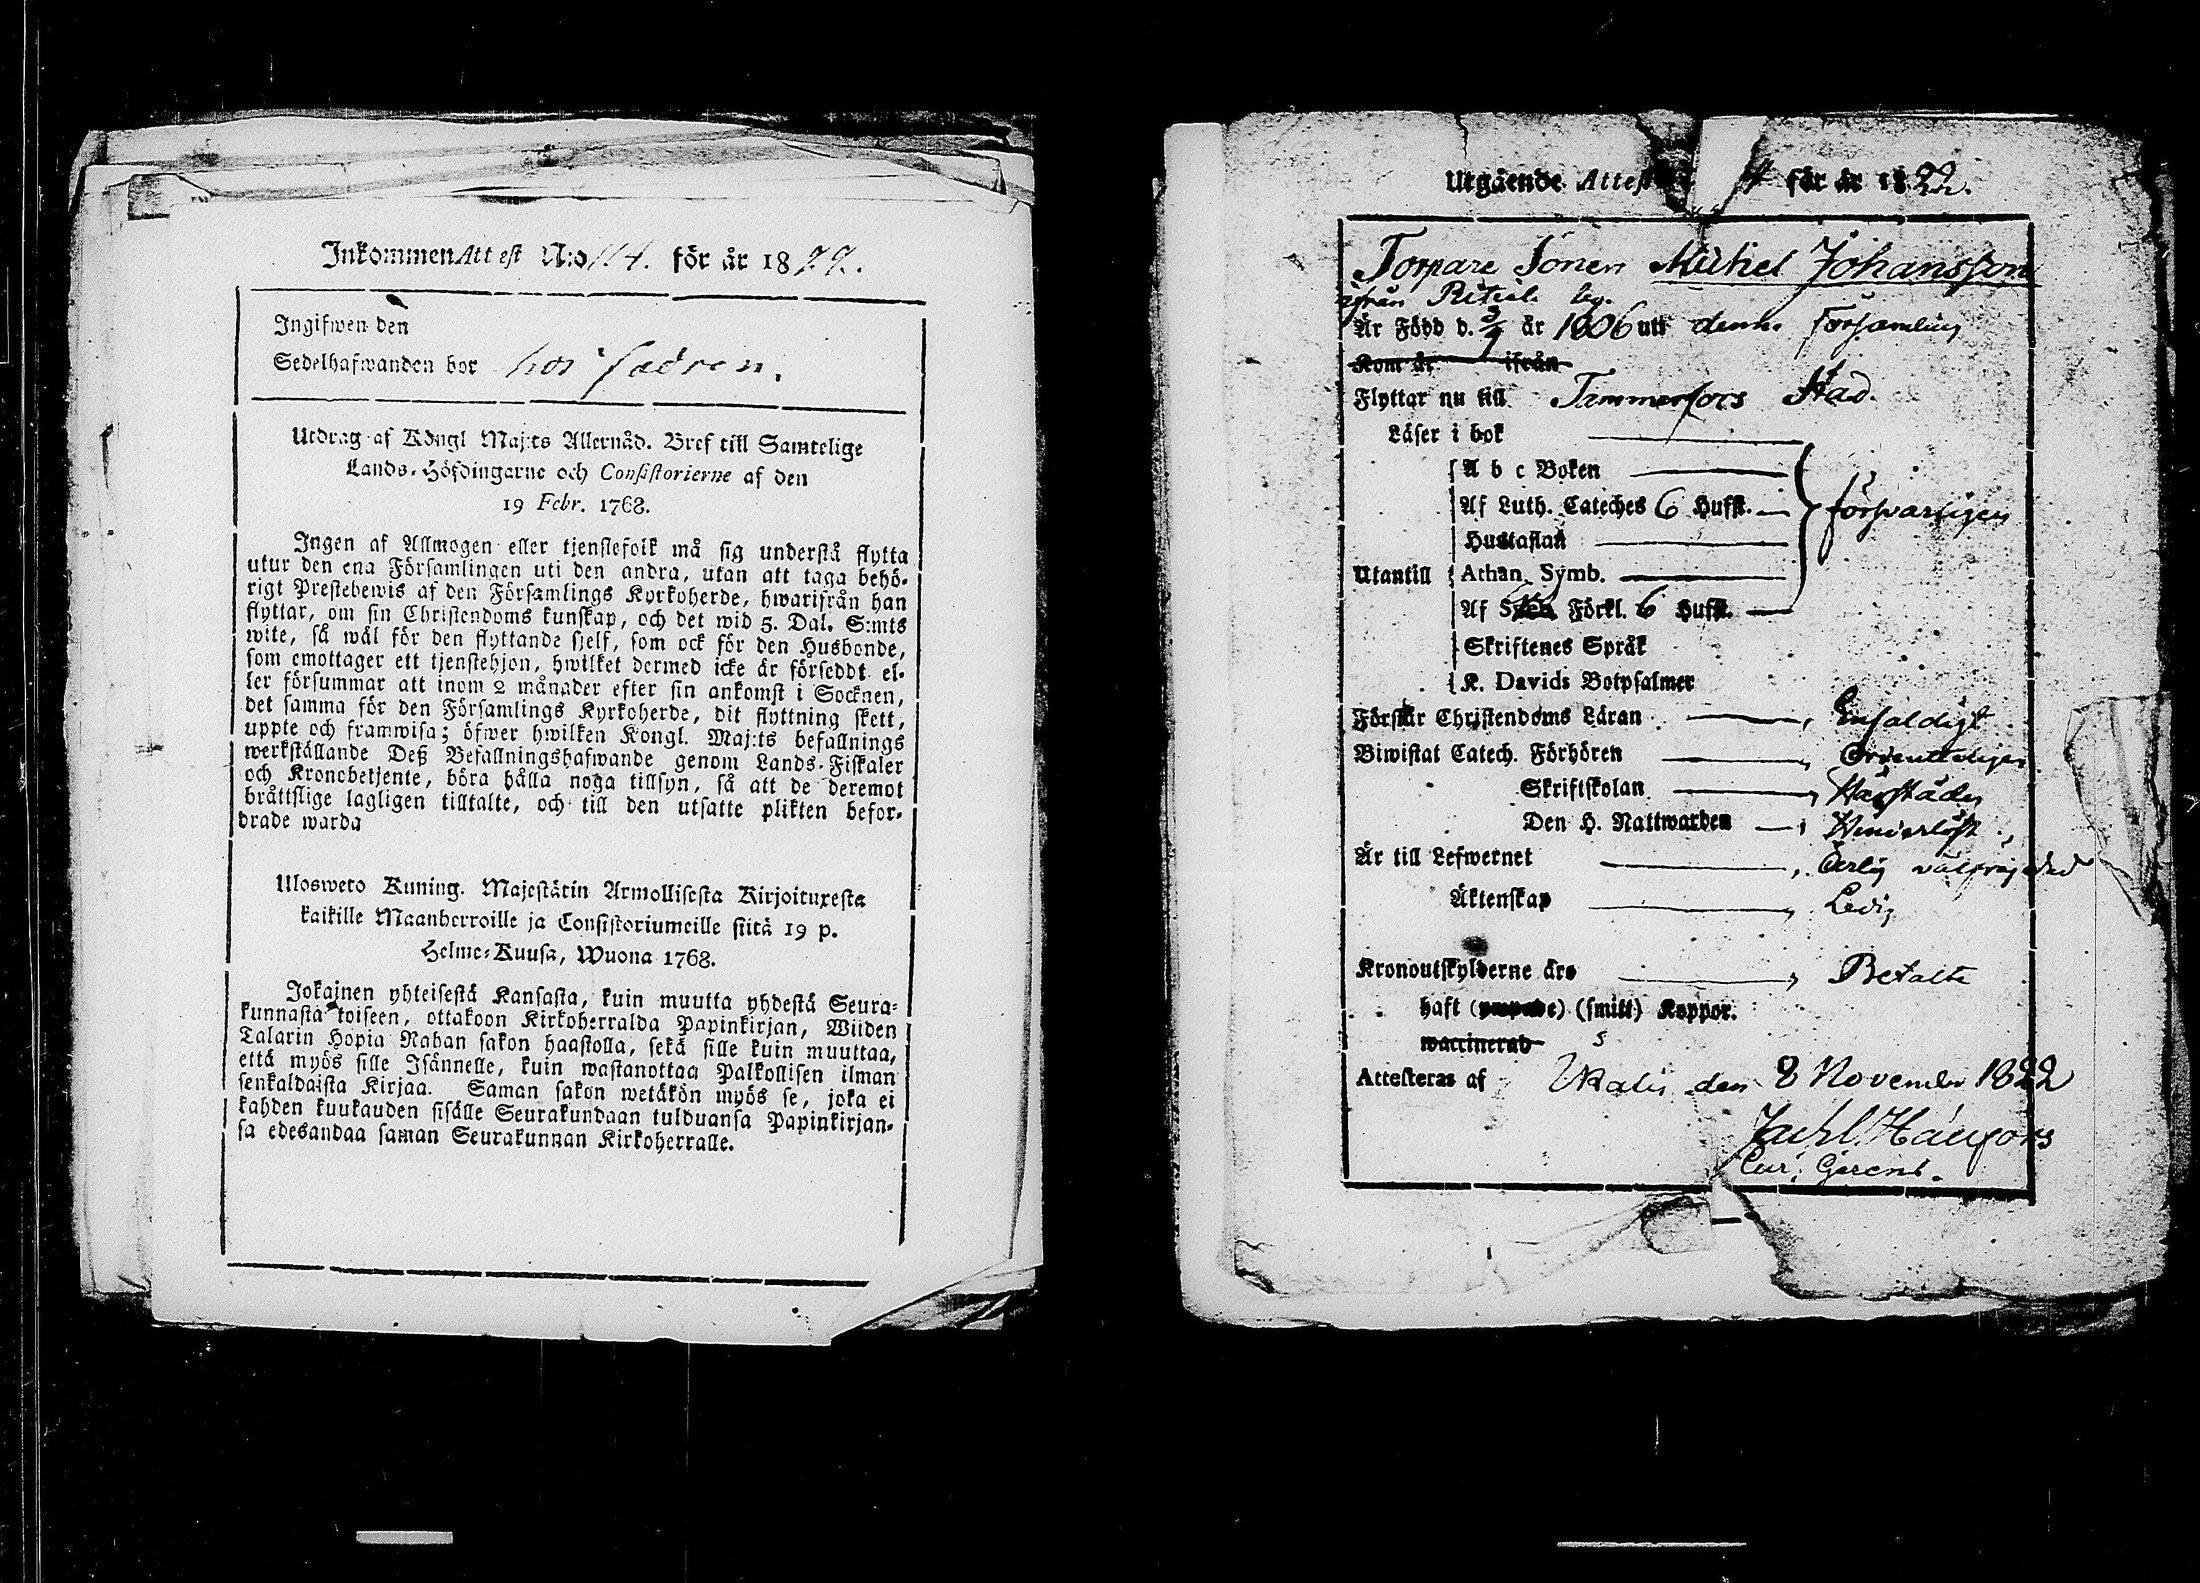 Inkommen Attest N:o 114. för år 1822.
Ingifwen den
Sedelhafwanden bor hos fadren.
Utdrag af Köngl Maj:ts Allernåd. Bref till Samtelige
Lands-Höfdingarne och Consistorierne af den
19 Febr. 1768.
Ingen af Allmogen eller tjenstefolk må sig understå flytta
utur den ena Församlingen uti den andra, utan att taga behö-
rigt Prestebewis af den Församlings Kyrkoherde, hwarifrån han
flyttar, om sin Christendoms kunskap, och det wid 5. Dal. S:mts
wite, så wäl för den flyttande sjelf, som ock för den Husbonde,
som emottager ett tjenstehjon, hwilket dermed icke är förseddt el-
ler försummar att inom 2 månader efter sin ankomst i Socknen,
det samma för den Församlings Kyrkoherde, dit flyttning skett,
uppte och framwisa; öfwer hwilken Kongl. Maj:ts befallnings
werkställande Deß Befallningshafwande genom Lands-Fiskaler
och Kronobetjente, böra hålla noga tillsyn, så att de deremot
bråttslige lagligen tilltalte, och till den utsatte plikten befor-
drade warda
Ulosweto Kuning. Majestätin Armollisesta Kirjoituxesta
kaikille Maanherroille ja Consistoriumeille siitä 19 p.
Helme-Kuusa, Wuona 1768.
Jokainen yhteisestä Kansasta, kuin muutta yhdestä Seura-
kunnasta toiseen, ottakoon Kirkoherralda Papinkirjan, Wiiden
Talarin Hopia Rahan sakon haastolla, sekä sille kuin muuttaa,
että myös sille Isännelle, kuin wastanottaa Palkollisen ilman
senkaldaista Kirjaa. Saman sakon wetäkön myös se, joka ei
kahden kuukauden sisälle Seurakundaan tulduansa Papinkirjan-
sa edesandaa saman Seurakunnan Kirkoherralle.
Utgående Attest 4 för år 1822.
Torpare Sonen Michel Johansson
ifrån
Är Född d. 3/9 år 1806 utI denna Församling
Kom år ifrån
Flyttar nu till Tammerfors Stad.
Läser i bok
A b c Boken
Af Luth. Cateches 6 Hufst. försvarligen
Hustaflan
Utantill Athan. Symb.
Af Förkl. 6 Hufst.
Skriftenes Språk
K. Davids Botpsalmer
Förstår Christendoms Läran Enfaldigt
Biwistat Catech. Förhören Ordenteligen
Skriftskolan Härstädes
Den H. Nattwarden Hinderlöst
Är till Lefwernet Ärlig välfrejdad
Äktenskap Ledig
Kronoutskylderne äro Betalte
haft (ympade) (smitt) Koppor.
waccinerad
Attesteras af Ikalis den 8 November 1822
Cur. Gerens.